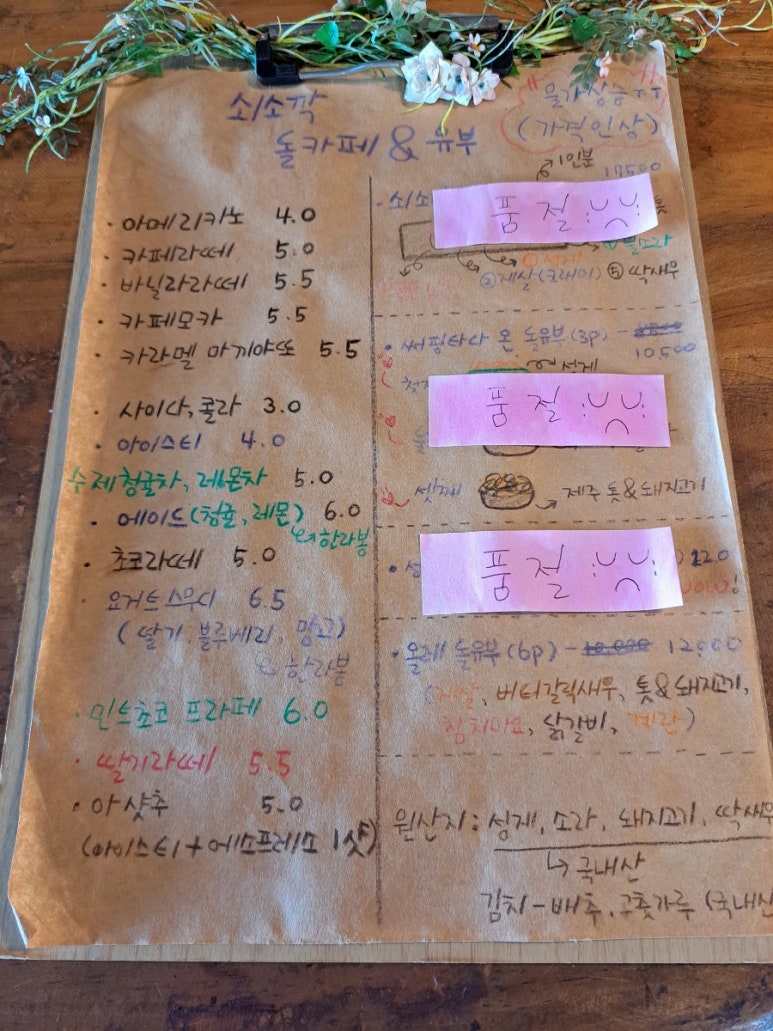 쇠소깍
돌카페 & 유부
물가상승ㅠㅠ
(가격인상)
· 아메리카노 4.0
· 카페라떼 5.0
· 바닐라라떼 5.5
· 카페모카 5.5
· 카라멜 마끼야또 5.5
· 사이다, 콜라 3.0
· 아이스티 4.0
수제청귤차, 레몬차 5.0
· 에이드 (청귤, 레몬) 6.0
한라봉
· 초코라떼 5.0
· 요거트스무디 6.5
(딸기, 블루베리, 망고)
한라봉
· 민트초코 프라페 6.0
· 딸기라떼 5.5
· 아샷추 5.0
(아이스티 + 에스프레소 1샷)
1인분
품절
② 게살(크래미) ⑤ 딱새우
· 써핑타다 온 돌유부 (3p) -
10,500
성게
품절
셋째
제주 톳&돼지고기
품절
12.0
wow!
· 올레 돌유부 (6p) - 10.000 12000
(게살, 버터갈릭새우, 톳&돼지고기,
참치마요, 닭갈비, 계란)
원산지: 성게, 소라, 돼지고기, 딱새우
↳ 국내산
김치 - 배추, 고춧가루 (국내산